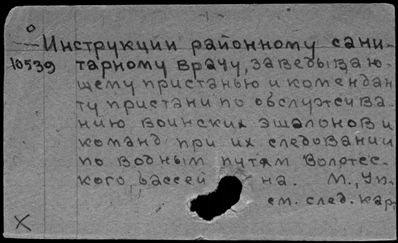 Инструкции районному сани-
10539 тарному врачу, заведываю-
щему пристанью и комендан
ту пристани по обслужива-
нию воинских эшалонов и
команд при их следовании
по водным путям Волжск-
кого бассей на. М., Уп.
см. след. кар.